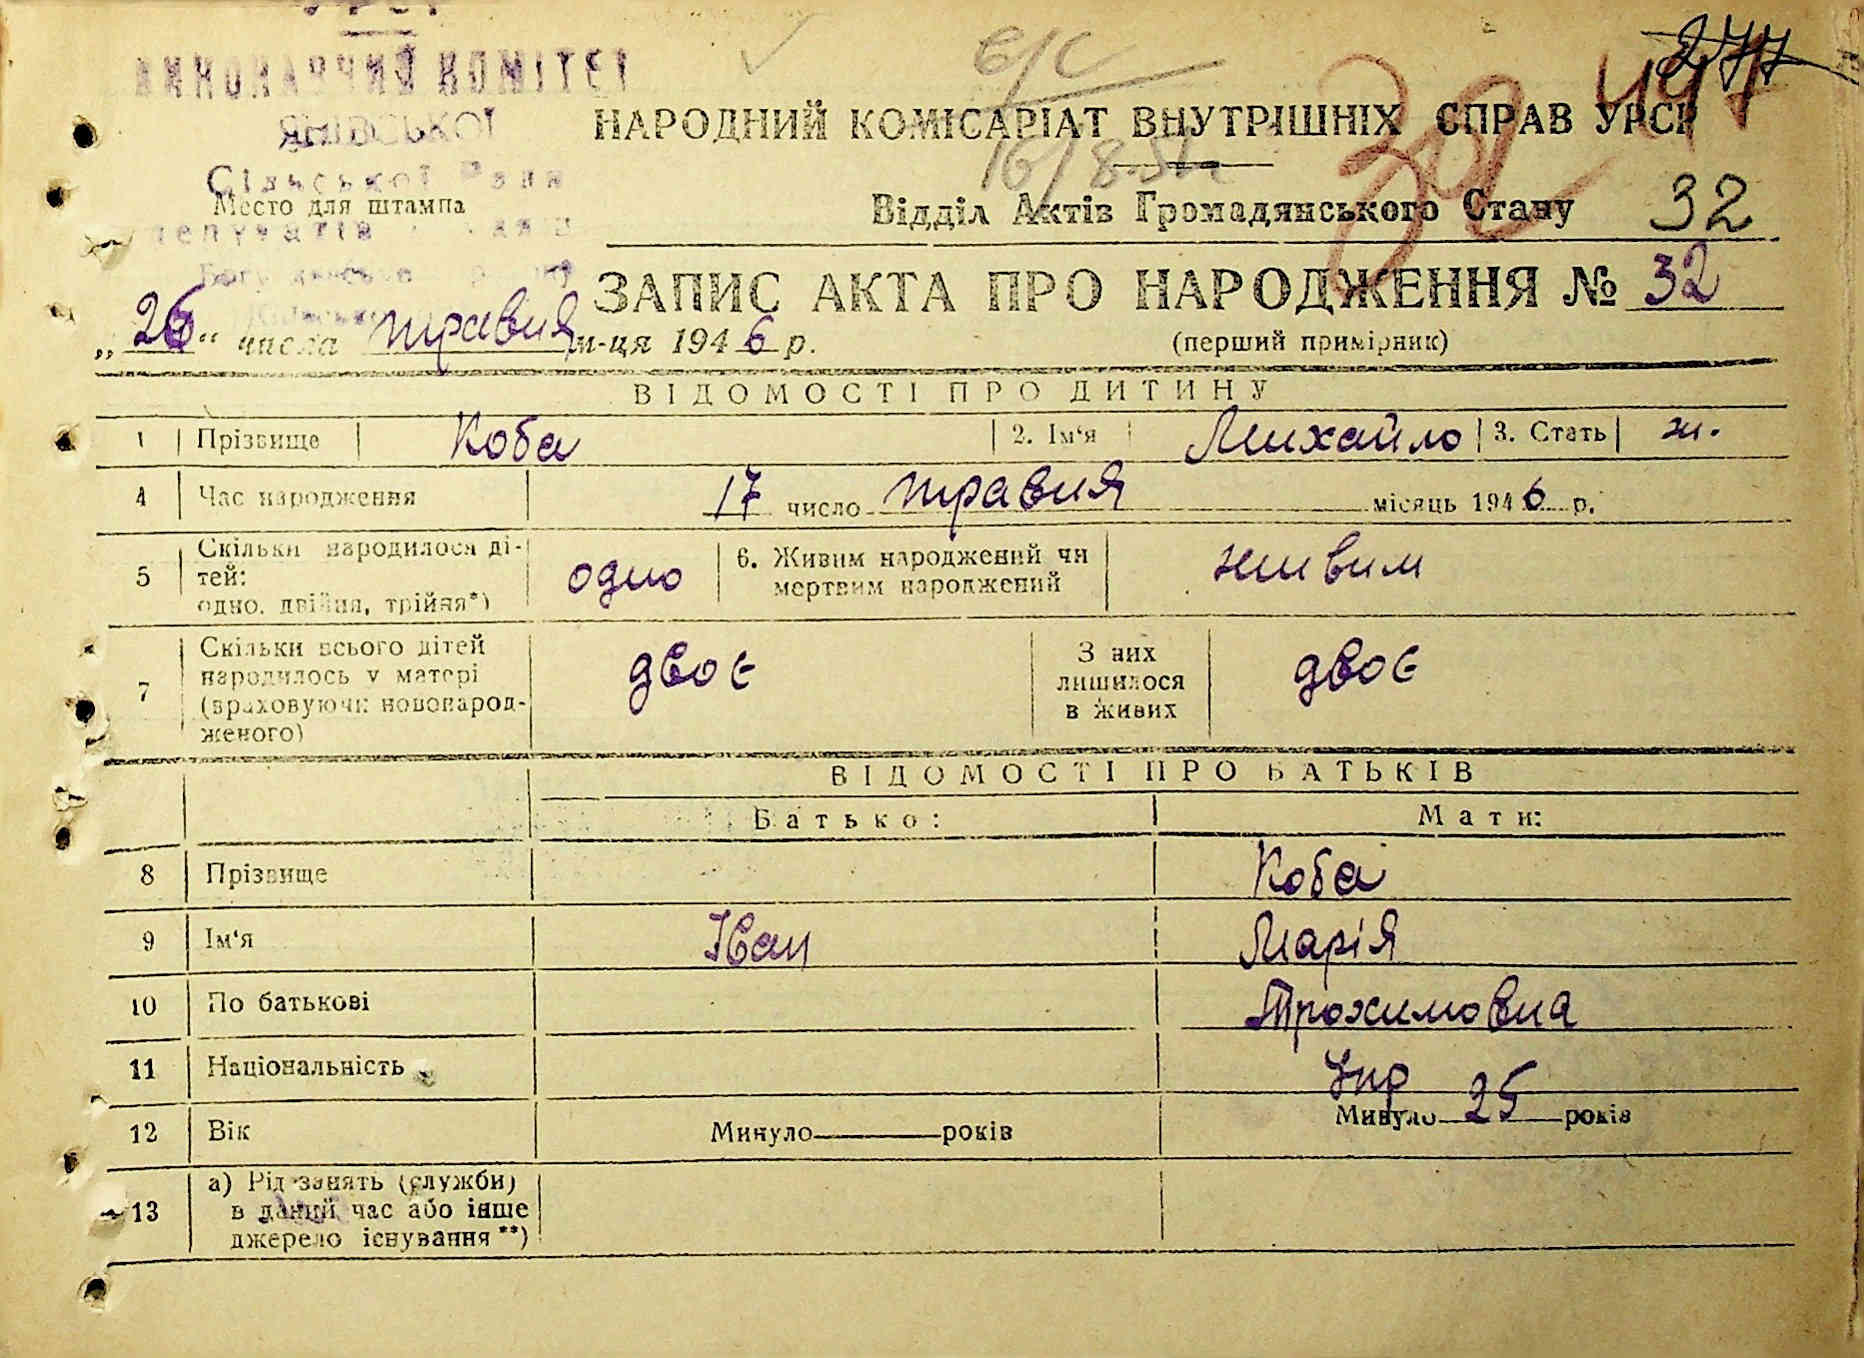 УРСР
ВИКОНАВЧИЙ КОМІТЕТ
Сільської Ради
Место для штампа
депутатів
277
32
НАРОДНИЙ КОМІСАРІАТ ВНУТРІШНІХ СПРАВ УРСР
16/8.51
Відділ Актів Громадянського Стану 32
ЗАПИС АКТА ПРО НАРОДЖЕННЯ № 32
„26“ числа травня м-ця 1946 р. (перший примірник)
ВІДОМОСТІ ПРО ДИТИНУ
1 Прізвище Коба 2. Ім‘я Михайло 3. Стать ч.
4 Час народження 17 число травня місяць 1946 р.
5 Скільки народилося ді-
тей:
одно, двійня, трійня*) одно 6. Живим народжений чи
мертвим народжений живим
7 Скільки всього дітей
народилось у матері
(враховуючи новонарод-
женого) двоє З них
лишилося
в живих двоє
ВІДОМОСТІ ПРО БАТЬКІВ
Батько: Мати:
8 Прізвище Коба
9 Ім‘я Іван Марія
10 По батькові Трохимовна
11 Національність Укр
12 Вік Минуло років Минуло 25 років
13 а) Рід занять (служби)
в даний час або інше
джерело існування**)